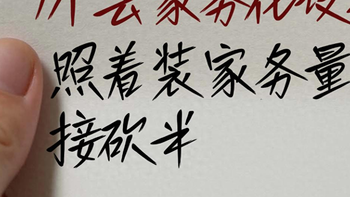 照着装家务量
接砍半